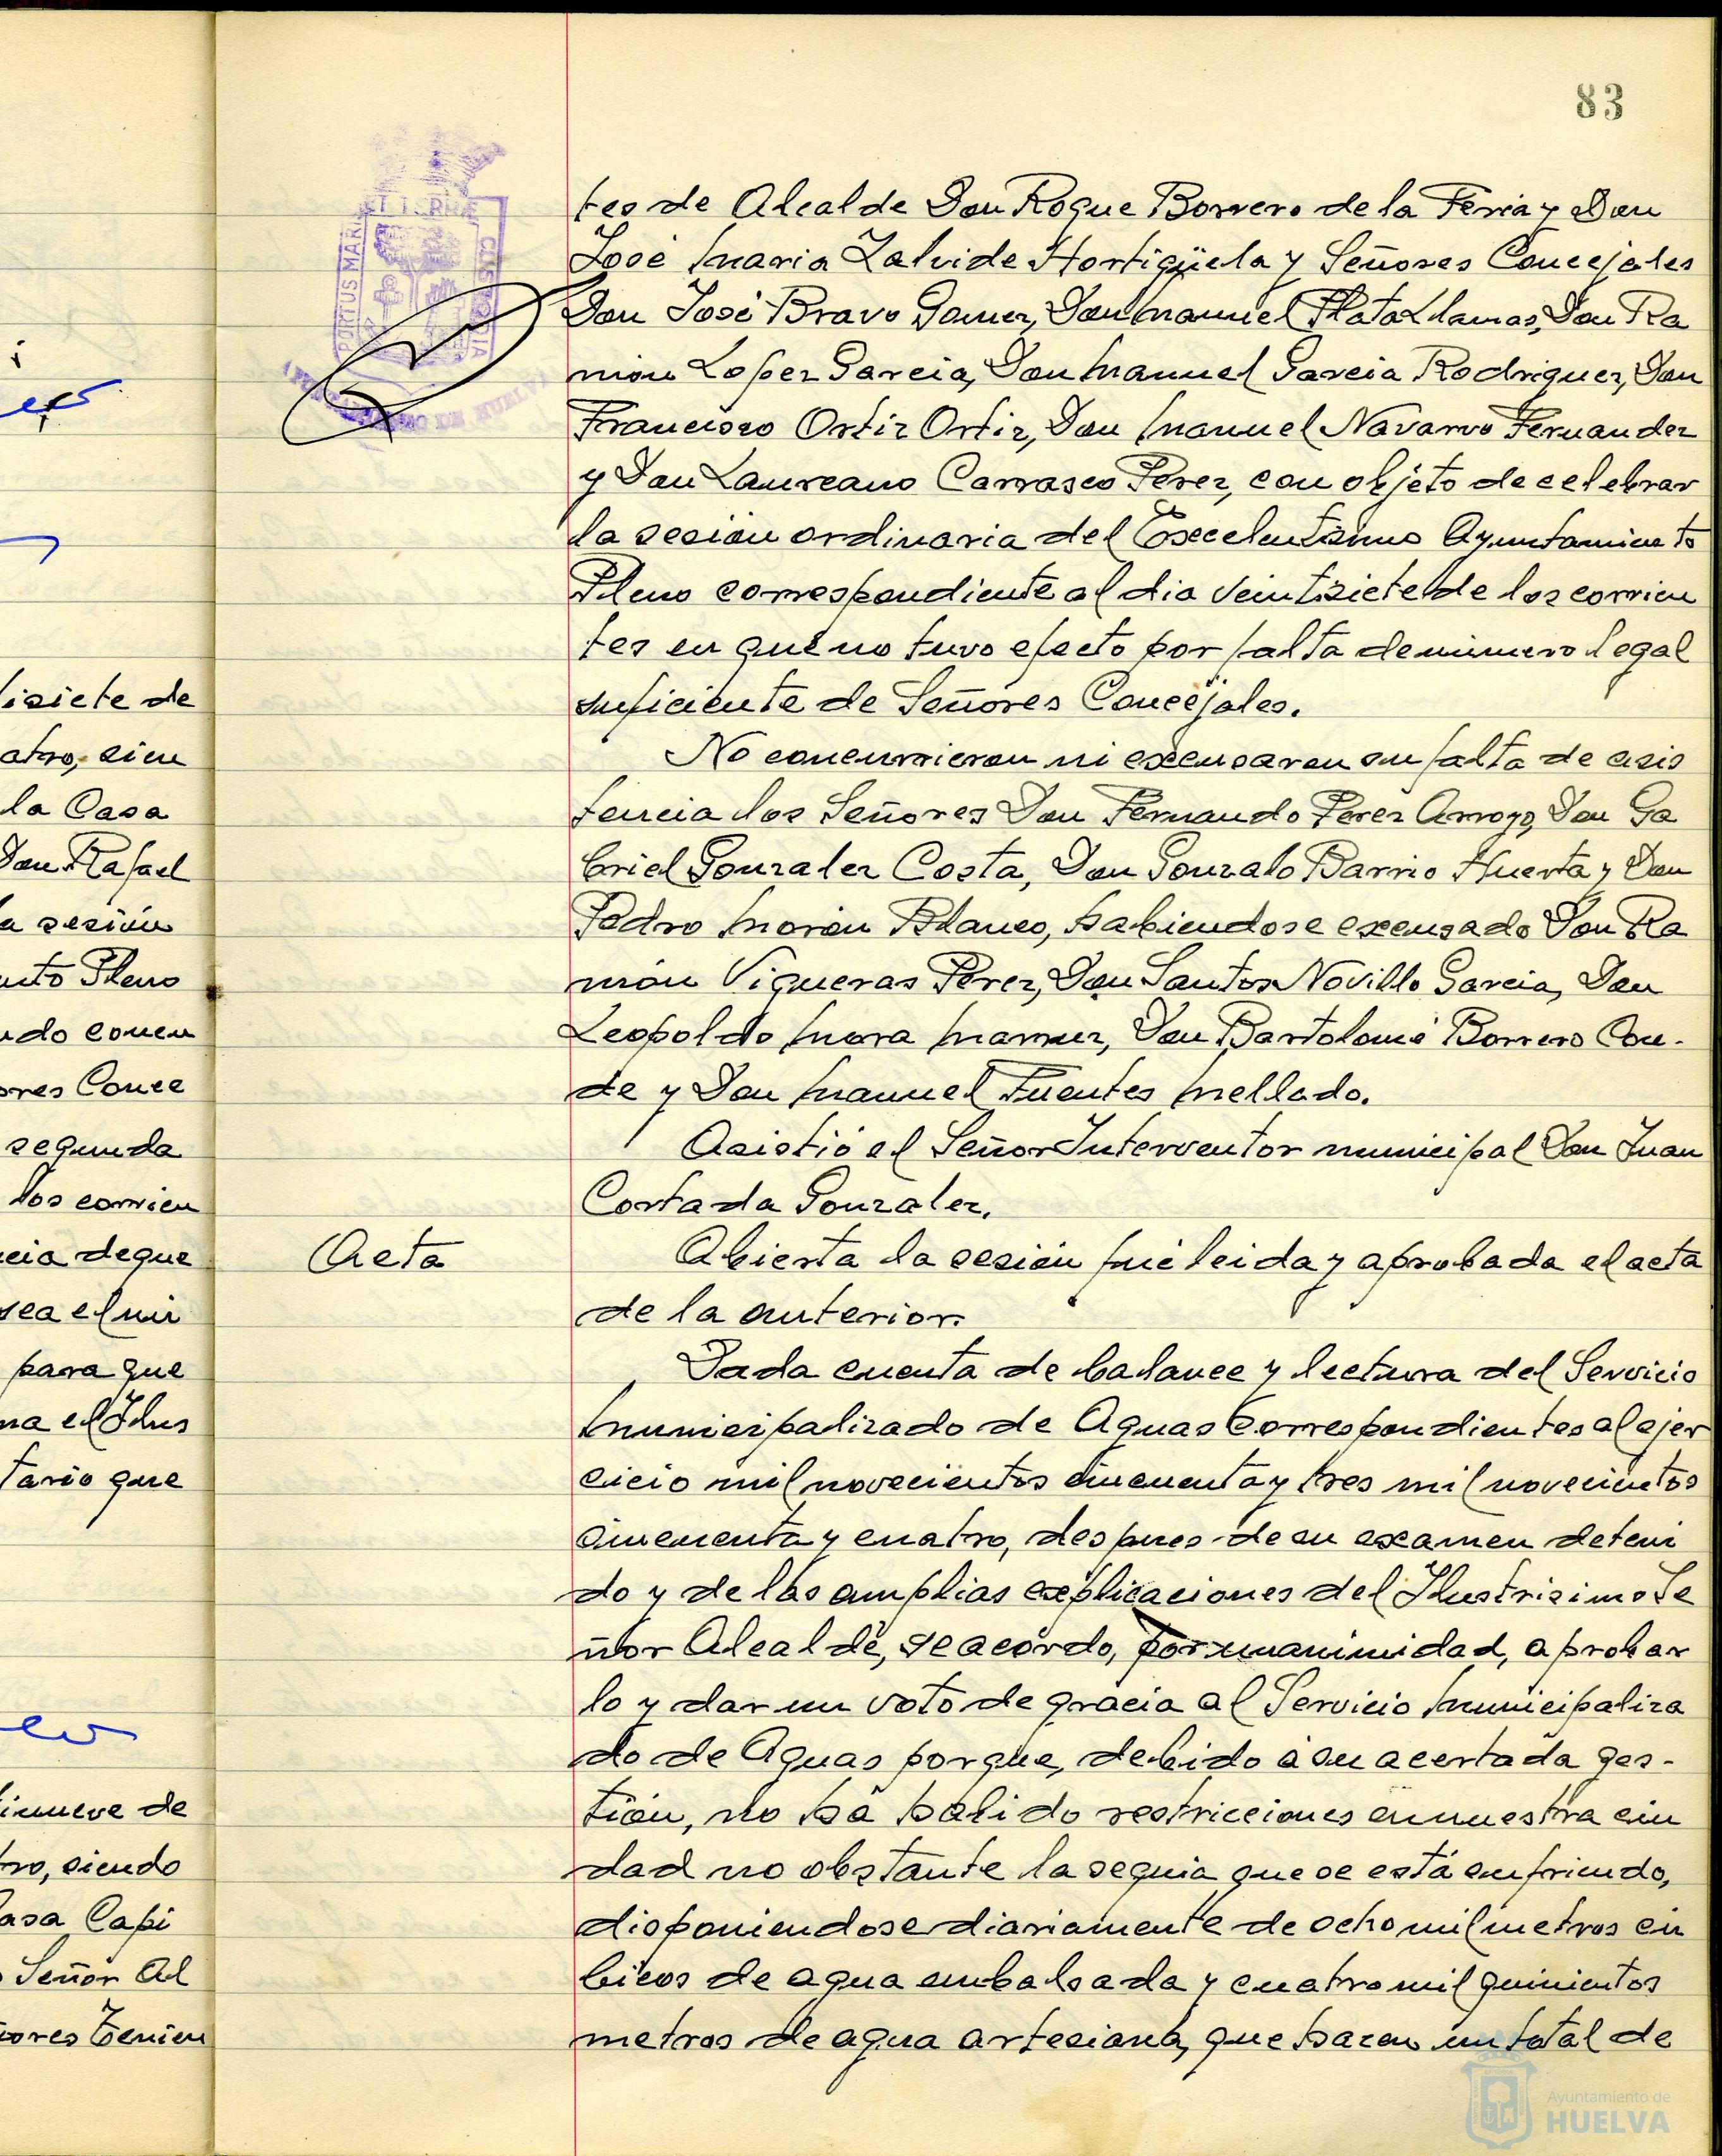 83
tes de Alcalde Don Roque Borrero de la Feria y Don
José Maria Zalvide Hortigüela y Señores Concejales
Don José Bravo Gomez, Don Manuel Plata Llamas, Don Ra
mon Lopez Garcia, Don Manuel Garcia Rodriguez, Don
Francisco Ortiz Ortiz, Don Manuel Navarro Fernandez
y Don Laureano Carrasco Perez, con objeto de celebrar
la sesión ordinaria del Excelentisimo Ayuntamiento
Pleno correspondiente al dia veintisiete de los corrien
tes en que no tuvo efecto por falta de número legal
suficiente de Señores Concejales.
No concurrieron ni excusaron su falta de asis
tencia los Señores Don Fernando Perez Arroyo, Don Ga
briel Gonzalez Costa, Don Gonzalo Barrio Huerta y Don
Pedro Morón Blanco, habiendose excusado Don Ra
món Vigueras Perez, Don Santos Novillo Garcia, Don
Leopoldo Mora Don Bartolomé Borrero Con-
de y Don Manuel Fuentes Mellado.
Asistió el Señor Interventor municipal Don Juan
Cortada Gonzalez.
Acta
Abierta la sesión fué leida y aprobada el acta
de la anterior.
Dada cuenta de balance y lectura del Servicio
Municipalizado de Aguas Correspondientes al ejer
cicio mil novecientos cincuenta y tres mil novecientos
cincuenta y cuatro, despues de su examen deteni
do y de las amplias explicaciones del Ilustrisimo Se
ñor Alcalde, se acordo, por unanimidad, aprobar
lo y dar un voto de gracia al Servicio Municipaliza
do de Aguas porque, debido á su acertada ges-
tión, no há habido restricciones en nuestra ciu
dad no obstante la sequia que se está sufriendo,
disponiendose diariamente de ocho mil metros cú
bicos de agua embalsada y cuatro mil quinientos
metros de agua artesiana, que hacen un total de
PORTUS MARIS ET TERRAE CUSTODIA
AYUNTAMIENTO DE HUELVA
isiete de
atro, sien
la Casa
Don Rafael
a sesión
nto Pleno
ndo concu
ores Conce
segunda
los corrien
cia de que
sea el nú
para que
ma el Ilus
tario que
inueve de
tro, siendo
Casa Capi
Señor Al
ores Tenien
Ayuntamiento de
HUELVA